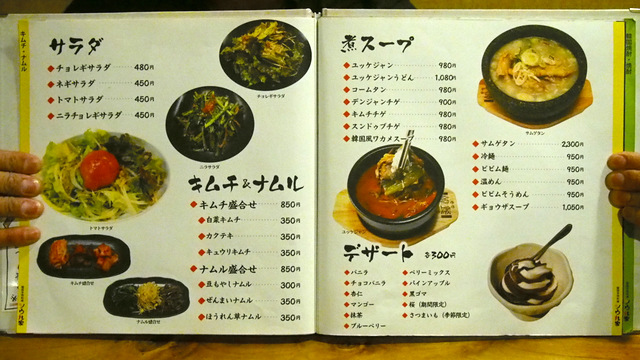 キムチ・ナムル
サラダ
チョレギサラダ 480円
ネギサラダ 450円
トマトサラダ 450円
ニラチョレギサラダ 450円
チョレギサラダ
ニラサラダ
トマトサラダ
キムチ&ナムル
キムチ盛合せ 850円
白菜キムチ 350円
カクテキ 350円
キュウリキムチ 350円
ナムル盛合せ 850円
豆もやしナムル 300円
ぜんまいナムル 350円
ほうれん草ナムル 350円
キムチ盛合せ
ナムル盛合せ
煮スープ
ユッケジャン 980円
ユッケジャンうどん 1,080円
コームタン 980円
デンジャンチゲ 900円
キムチチゲ 900円
スンドゥブチゲ 900円
韓国風ワカメスープ 900円
サムゲタン
サムゲタン 2,300円
冷麺 950円
ビビム麺 950円
温めん 950円
ビビムそうめん 950円
ギョウザスープ 1,050円
ユッケジャン
デザート 各300円
バニラ
チョコバニラ
杏仁
マンゴー
抹茶
ブルーベリー
ベリーミックス
パインアップル
黒ゴマ
桜(期間限定)
さつまいも(季節限定)
ソウル家